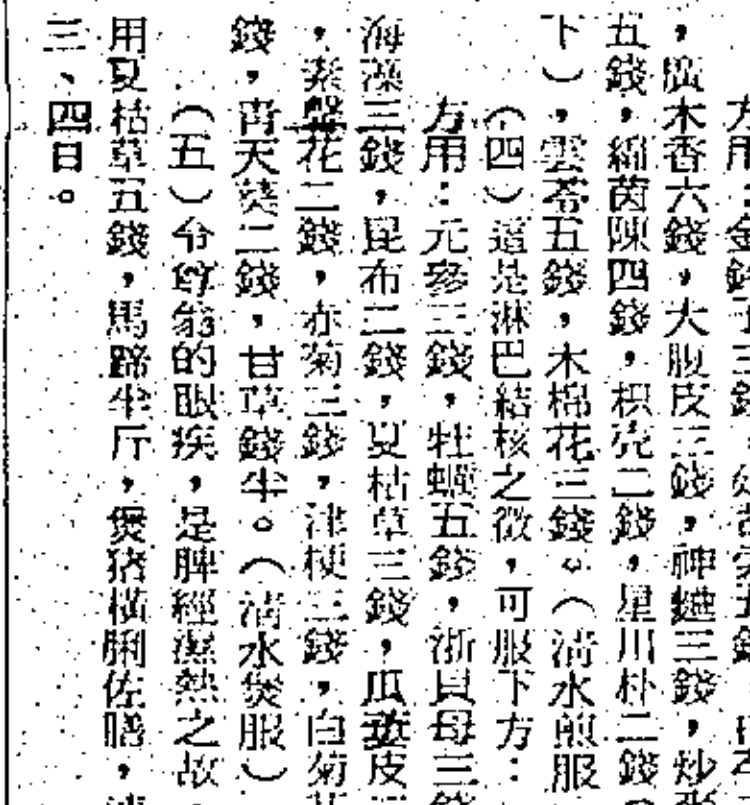 方用：金鈴子三錢，
，廣木香六錢，大腹皮三錢，神麯三錢，炒
五錢，綿茵陳四錢，枳壳二錢，星川朴二錢
下），雲苓五錢，木棉花三錢。（清水煎服
（四）這是淋巴結核之徵，可服下方：
方用：元參三錢，牡蠣五錢，浙貝母三錢
海藻三錢，昆布二錢，夏枯草三錢，瓜蔞皮
，素馨花二錢，赤菊三錢，津梗三錢，白菊花
錢，青天葵二錢，甘草錢半。（清水煲服）
（五）令尊翁的眼疾，是脾經濕熱之故，
用夏枯草五錢，馬蹄半斤，煲猪橫脷佐膳，
三、四日。